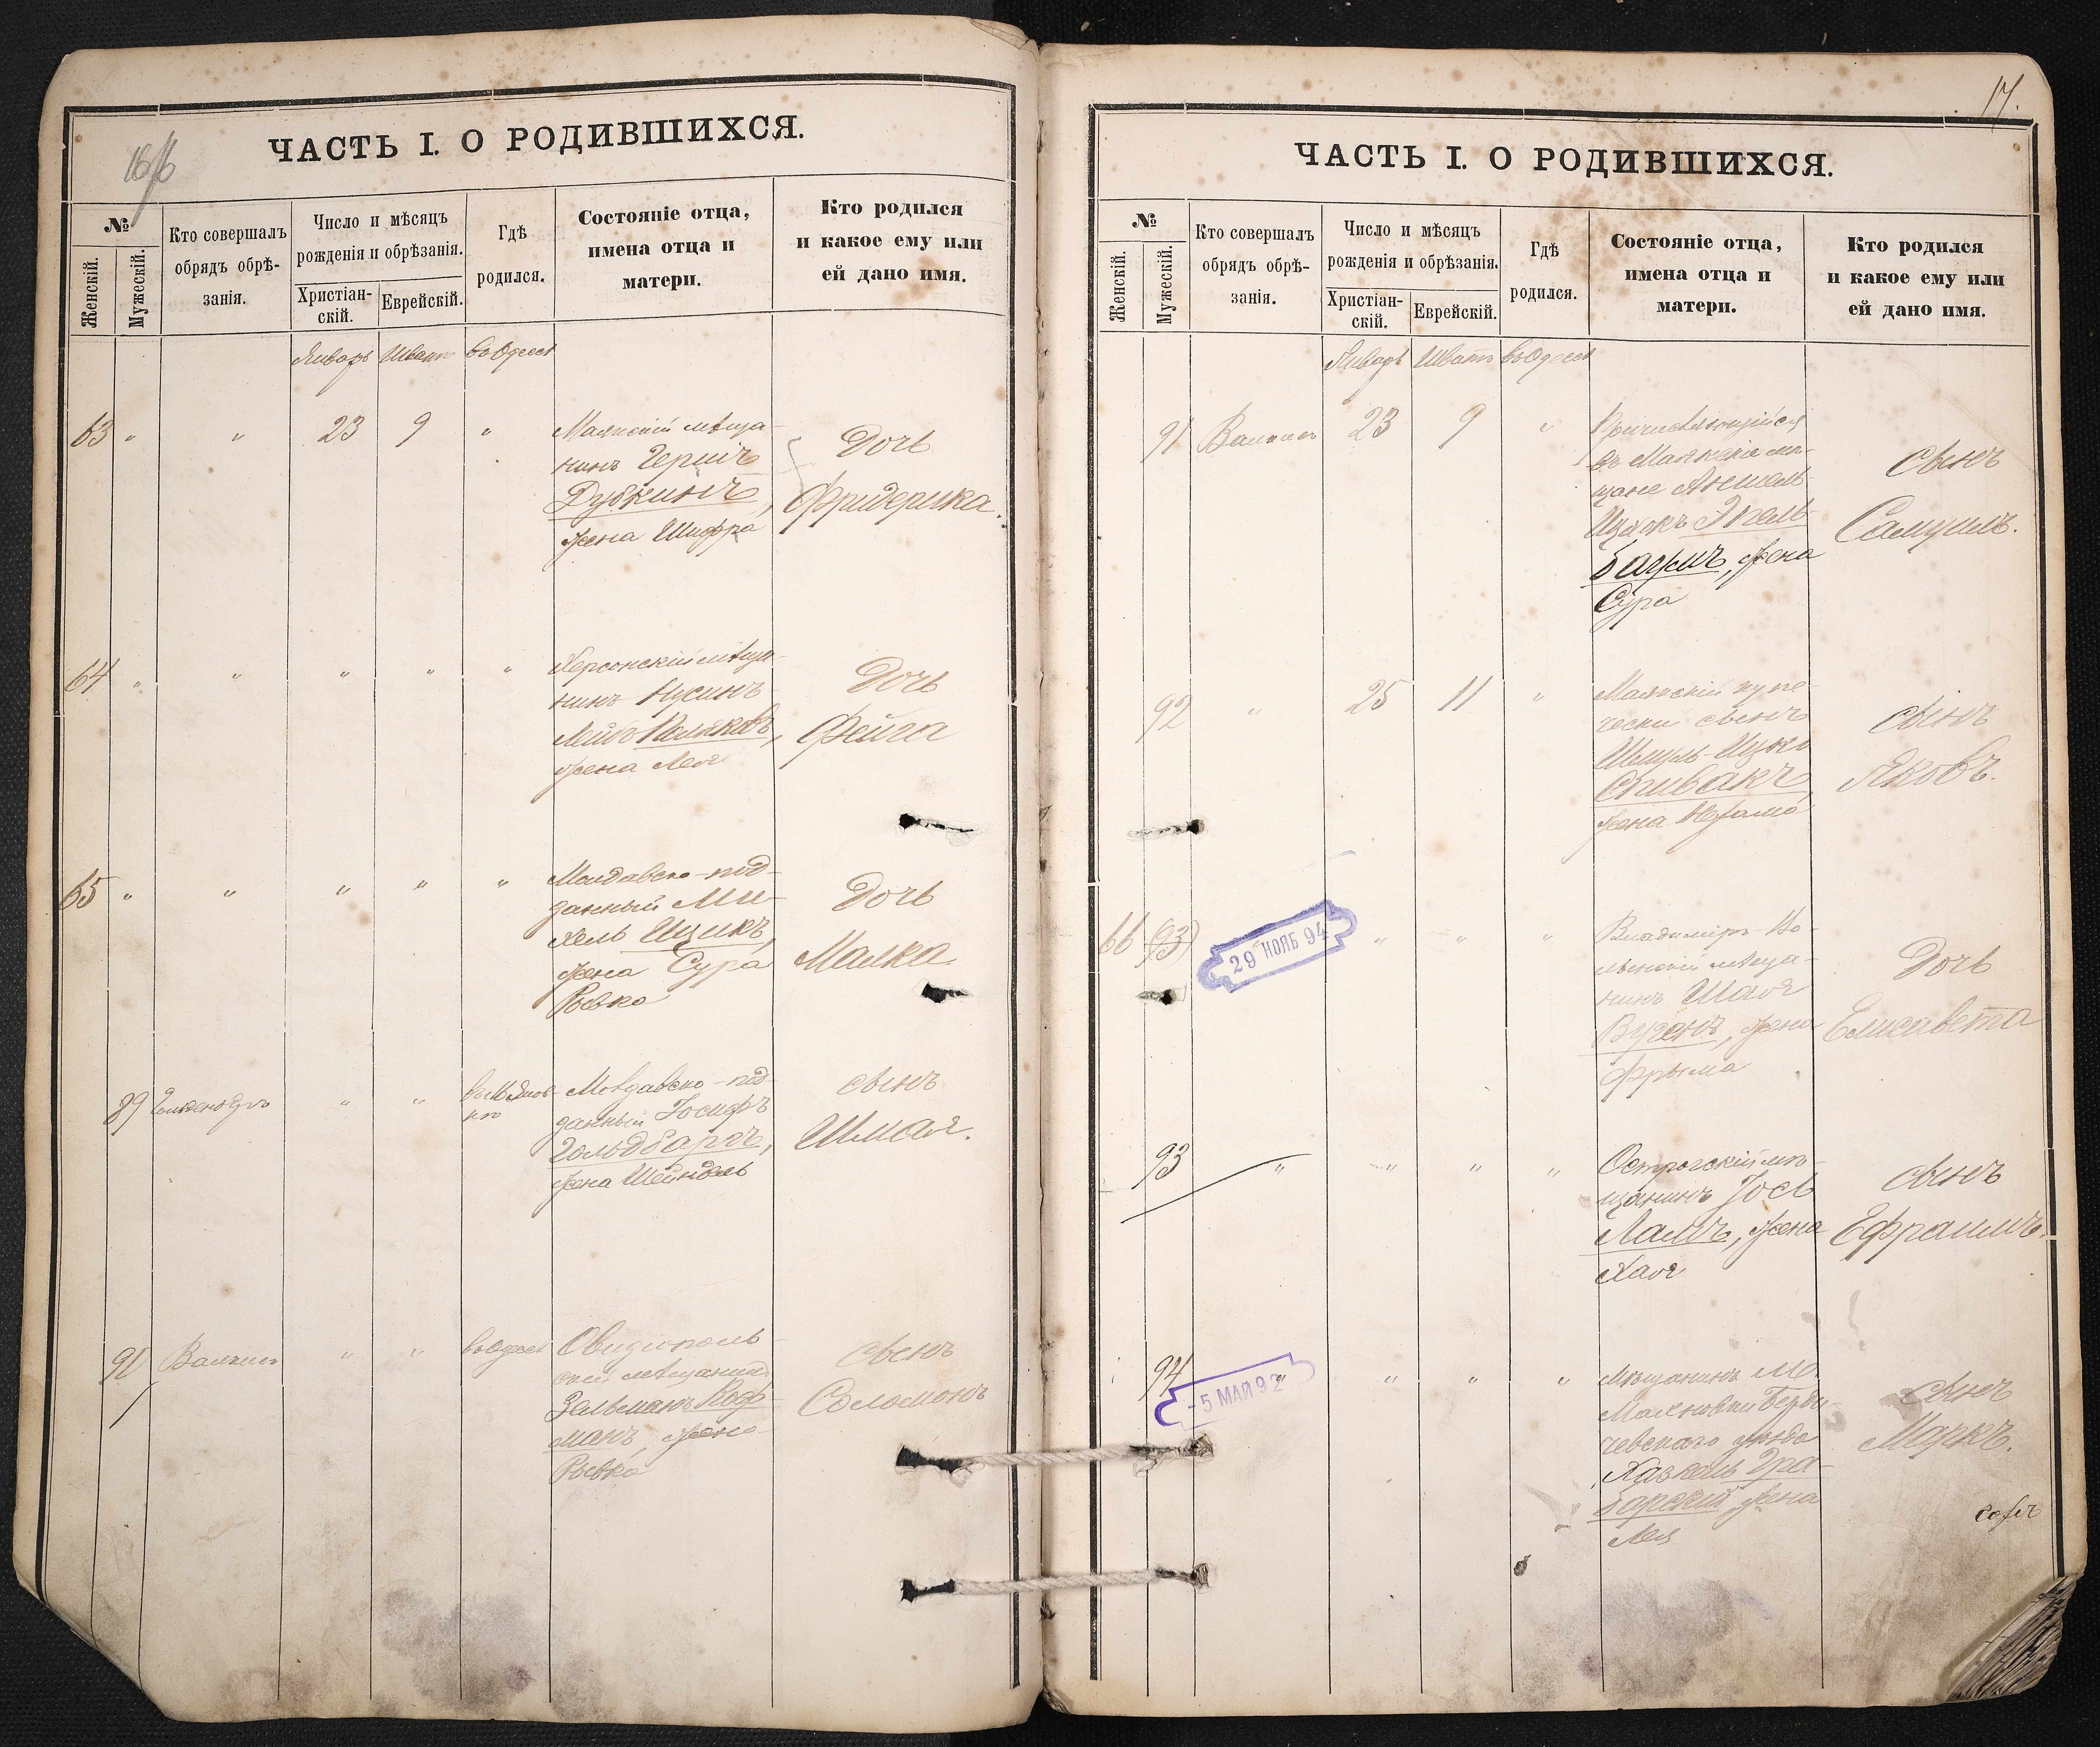 16/16
ЧАСТЬ I. О РОДИВШИХСЯ.
№
Женскій.
Мужескій.
Кто совершалъ
обрядъ обрѣ-
занія.
Число и мѣсяцъ
рожденія и обрѣзанія.
Христіан-
скій.
Еврейскій.
Гдѣ
родился.
Состояніе отца,
имена отца и
матери.
Кто родился
и какое ему или
ей дано имя.
Январь Шватъ въ Одессѣ
63 " " 23 9 "
Маякскій мѣща-
нинъ Гершъ
Дубкинъ,
жена Шифра
Дочь
Фридерика.
64 " " " " "
Херсонскій мѣща-
нинъ Нусинъ-
Лейбъ Поляковъ,
жена Лея
Дочь
Фейга
65 " " " " "
Молдавско-под-
данный Ми-
хель Ицикъ,
жена Сура
Рывка
Дочь
Малка.
89 " "
Молдавско-под-
данный Іосифъ
Гольдбаргъ,
жена Шейндель
сынъ
Шмая.
90 " " въ Одессѣ
Овидіополь-
скій мѣщанинъ
Зельманъ Коф-
манъ, жена
Рывка
сынъ
Соломонъ
17.
ЧАСТЬ I. О РОДИВШИХСЯ.
№
Женскій.
Мужескій.
Кто совершалъ
обрядъ обрѣ-
занія.
Число и мѣсяцъ
рожденія и обрѣзанія.
Христіан-
скій.
Еврейскій.
Гдѣ
родился.
Состояніе отца,
имена отца и
матери.
Кто родился
и какое ему или
ей дано имя.
Январь Шватъ въ Одессѣ
91 23 9 "
Причисляющійся
въ Маякскіе мѣ-
щане Аншель-
Ицекъ
жена
Сура
сынъ
Самуилъ.
92 " 25 11 "
Маякскій купе-
ческій сынъ
Шмуль-Ицко
Спивакъ,
жена
сынъ
Яковъ.
66 (93) " " "
29 НОЯБ 94
Владиміръ-Во-
лынскій мѣща-
нинъ Шая
жена
Фрыма
Дочь
Елисавета
93 " " " "
Острогскій мѣ-
щанинъ Іось
Ламъ, жена
Хая
сынъ
Ефраимъ.
94 " " " "
- 5 МАЙ 92
Мѣщанинъ М.
Махновки Берди-
чевскаго уѣзда
Хаскель Гра-
барскій жена
Лея
сынъ
Маркъ.